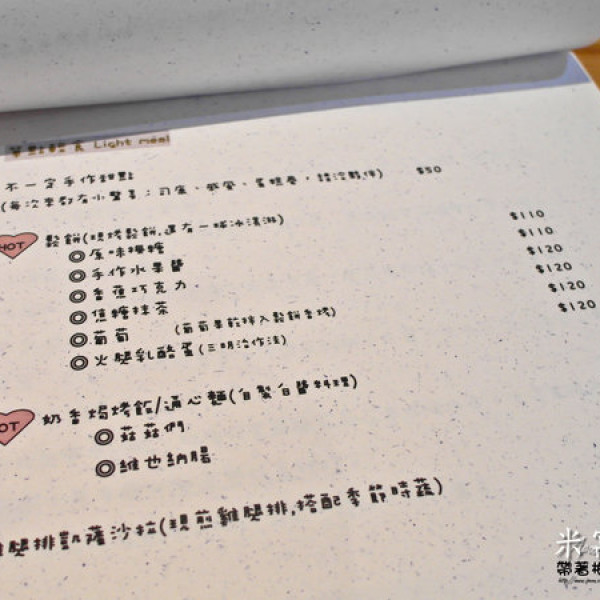 單點輕食 Light meal
不一定手作甜點
(每次來都有小驚喜:司康、戚風、蛋糕卷,請洽夥伴) $50
HOT 鬆餅(現烤鬆餅,還有一球冰淇淋)
◎原味楓糖 $110
◎手作水果醬 $110
◎香蕉巧克力 $120
◎焦糖抹茶 $120
◎葡萄 (葡萄果乾拌入鬆餅香烤) $120
◎火腿乳酪蛋(三明治作法) $120
HOT 奶香焗烤飯/通心麵(自製白醬料理)
◎菇菇們
◎維也納腸
雞腿排凱薩沙拉(現煎雞腿排,搭配季節時蔬)
米
帶著